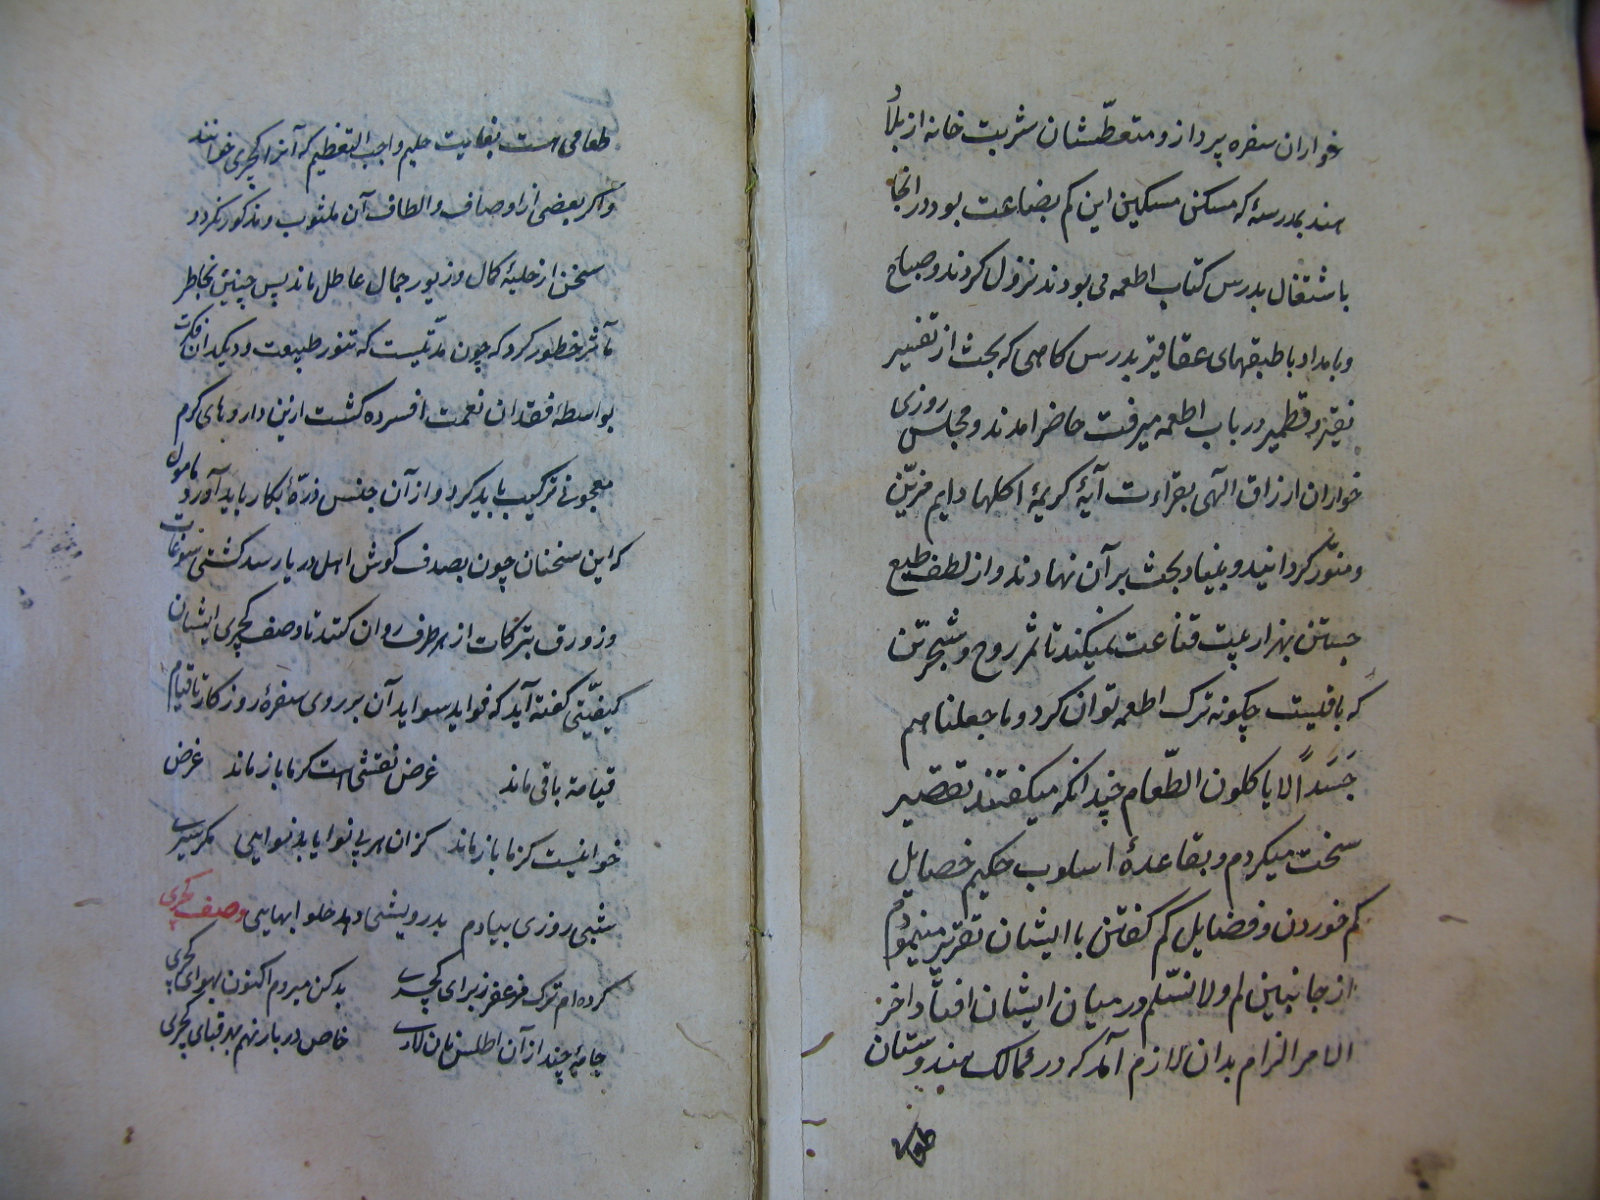 خواران سفره پرداز و متعطّشان شربت خانه از بلاد
هند بمدرسهٔ که مسکن مسکین این کم بضاعت بود در انجا
باشتغال بدرس کتاب اطعمه می بودند نزول کردند و صباح
و بامداد با طبقهای عقاقیر بدرس کاهی که بحث از تفسیر
نقیر و قطمیر در باب اطعمه میرفت حاضر امدند و مجلس روزی
خواران ارزاق الهی بقراءت آیهٔ کریمهٔ اکلها دایم مزیّن
و منوّر کردانیدند و بنیاد بحث بر آن نهادند و از لطف طبع
جستن بهزار بیت قناعت میکند تا ثمر روح و شجر تن
که باقیست چکونه ترک اطعمه توان کرد و ما جعلناهم
جَسَداً لا یاکلون الطّعام چندانکه میکفتند تقصیر
سخت میکردم و بقاعدهٔ اسلوب حکیم خصایل
کم خوردن و فضایل کم کفتن با ایشان تقریر مینمودم
از جانبین لم و لا نسّلم در میان ایشان افتاد اخر
الامر الزام بدان لازم آمد که در ممالک هندوستان
طعامی است بغایت حلیم واجب التعظیم که آنرا کچری خوانند
و اکر بعضی از اوصاف و الطاف آن مکتوب و مذکور نکردد
سخن از حلیهٔ کمال و زیور جمال عاطل ماند پس چنین بخاطر
فاتر خطور کرد که چون مدّتیست که تنور طبیعت و دیکدان فکرت
بواسطهٔ فقدان نعمت افسرده کشت ازین داروهای کرم
معجونی ترکیب باید کرد و از آن جنس ذرّهٔ بکار باید آورد مامول
که این سخنان چون بصدف کوش اهل دریا رسد کشتی سوغات
و زورق تبرکات از هر طرف روان کنند تا وصف کچری ایشان
کیفیّتی کفته آید که فواید سواید آن بر روی سفرهٔ روزکار تا قیام
قیامة باقی ماند غرض نقشی است کز ما باز ماند غرض
خوانیست کز ما باز ماند کزان هر بی نوا یابد نوایی مکر سیری
شبی روزی بیادم بدرویشی دهد حلوا بهایی وصف کچری
کرده ام ترک مزعفر ز برای کچری بدکن میروم اکنون بهوای کچری
جامهٔ چند از آن اطلس نان لاری خاص در بار نهم بهر قبای کچری